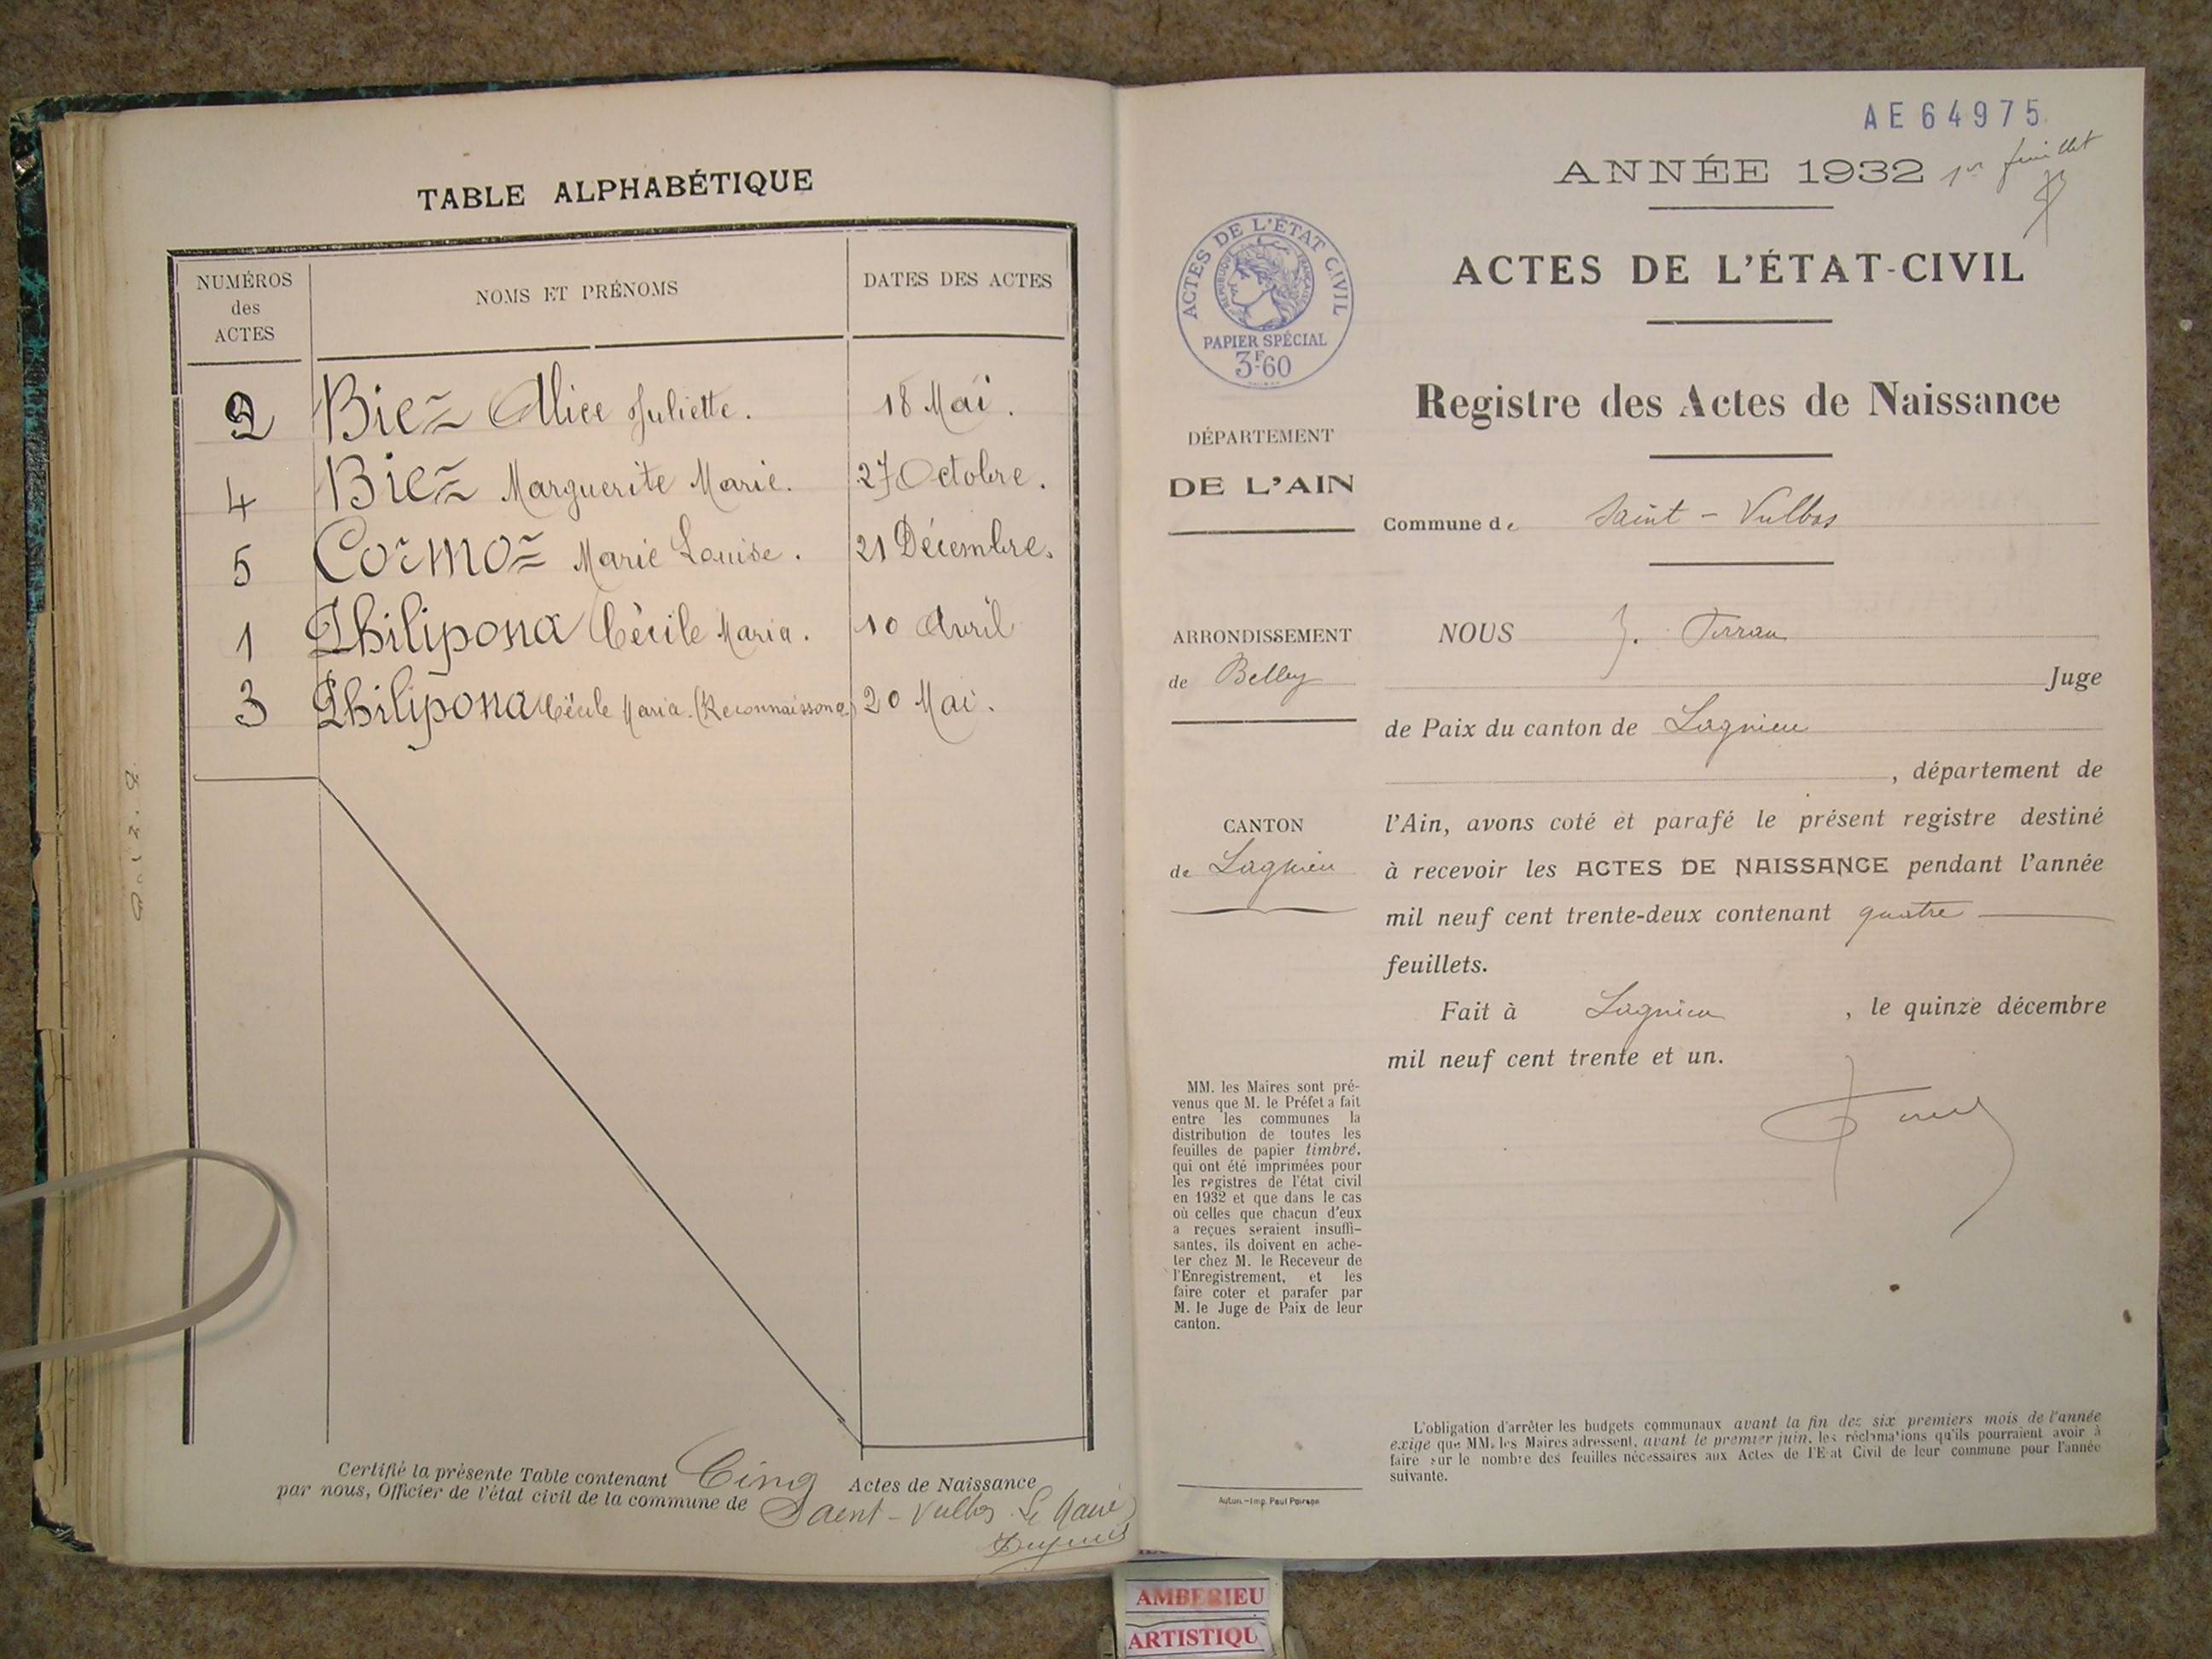 TABLE ALPHABÉTIQUE
NUMÉROS
des
ACTES
NOMS ET PRÉNOMS
DATES DES ACTES
2 Biez Alice Juliette. 18 Mai.
4 Biez Marguerite Marie. 27 Octobre.
5 Cormoz Marie Louise. 21 Décembre.
1 Philipona Cécile Maria. 10 Avril
3 Philipona Cécile Maria. (Reconnaissance) 20 Mai.
Certifié la présente Table contenant Cinq Actes de Naissance
par nous, Officier de l'état civil de la commune de Saint-Vulbas. Le Maire
AE64975
ANNÉE 1932 1er feuillet
ACTES DE L'ÉTAT CIVIL
RÉPUBLIQUE FRANÇAISE
PAPIER SPÉCIAL
3F60
ACTES DE L'ÉTAT-CIVIL
Registre des Actes de Naissance
DÉPARTEMENT
DE L'AIN
Commune de Saint-Vulbas
ARRONDISSEMENT
de Belley
CANTON
de Lagnieu
NOUS J.
Juge
de Paix du canton de Lagnieu
, département de
l'Ain, avons coté et parafé le présent registre destiné
à recevoir les ACTES DE NAISSANCE pendant l'année
mil neuf cent trente-deux contenant quatre
feuillets.
Fait à Lagnieu, le quinze décembre
mil neuf cent trente et un.
MM. les Maires sont pré-
venus que M. le Préfet a fait
entre les communes la
distribution de toutes les
feuilles de papier timbré,
qui ont été imprimées pour
les registres de l'état civil
en 1932 et que dans le cas
où celles que chacun d'eux
a reçues seraient insuffi-
santes, ils doivent en ache-
ter chez M. le Receveur de
l'Enregistrement, et les
faire coter et parafer par
M. le Juge de Paix de leur
canton.
Autun.-Imp. Paul Poirson
L'obligation d'arrêter les budgets communaux avant la fin des six premiers mois de l'année
exige que MM. les Maires adressent, avant le premier juin, les réclamations qu'ils pourraient avoir à
faire sur le nombre des feuilles nécessaires aux Actes de l'Etat Civil de leur commune pour l'année
suivante.
AMBERIEU
ARTISTIQU